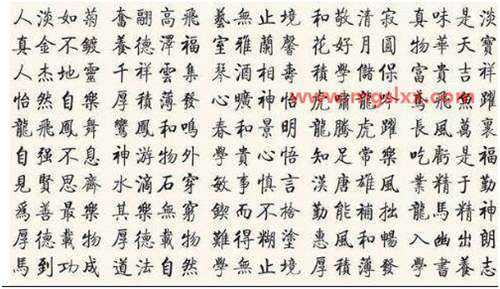 人淡如菊 奮翮高飛 藝無止境 和敬清寂 真味是淡
真金不鍍 養德澤福 室雅蘭馨 花好月圓 物華天寶
人杰地靈 千祥雲集 琴酒相壽 學儲 富貴吉祥
怡然自樂 厚積薄發 心曠神怡
www.mgslxx.com
龍飛鳳舞 鸞鳳和鳴 春和景明 龍騰虎躍 長風萬裏
自强不息 神游物外 學貴心悟 知足常樂 吃虧是福
見賢思齊 水滴石穿 敏事慎言 漢唐雄風 業精于勤
爲善最樂 其樂無窮 鍥而不捨 勤能補拙 龍馬精神
厚德載物 厚德載物 難得糊塗 惠風和暢 入幽出朗
馬到功成 道法自然 學無止境 厚積薄發 學書養志